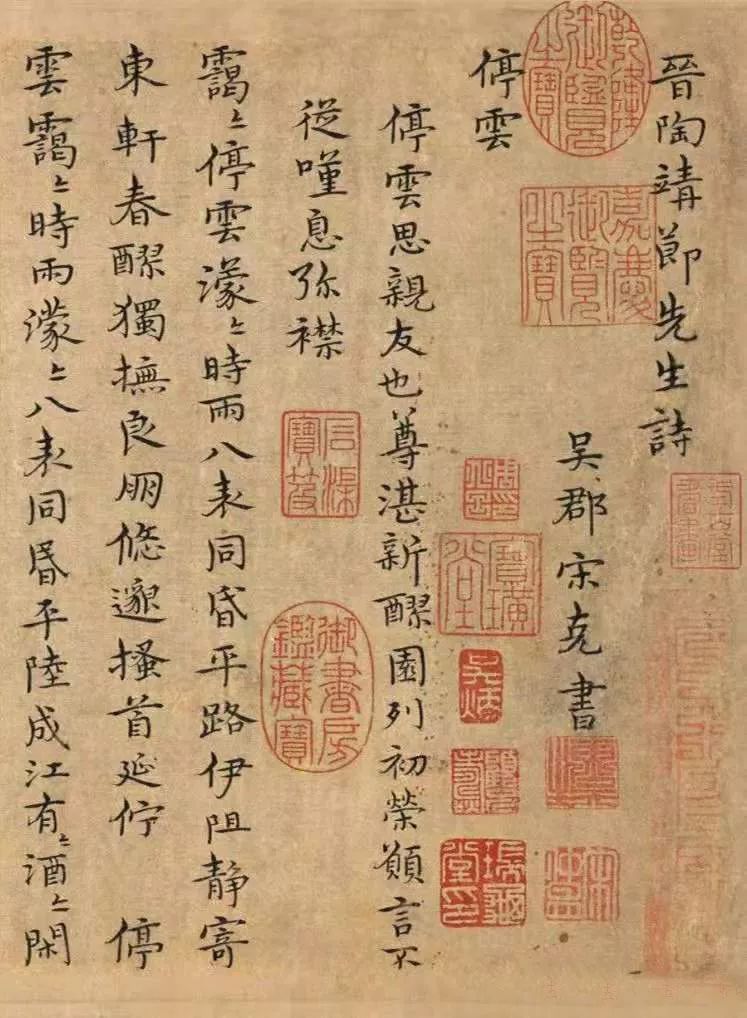 晉陶靖節先生詩
吳郡宋克書
停雲
停雲思親友也尊湛新醪園列初榮願言不
從嘆息弥襟
靄〻停雲濛〻時雨八表同昏平路伊阻静寄
東軒春醪獨撫良朋悠邈搔首延佇 停
雲靄〻時雨濛〻八表同昏平陸成江有〻酒〻閑
乾隆御覽之寶
嘉慶御覽之寶
石渠寶笈
御書房鑑藏寶